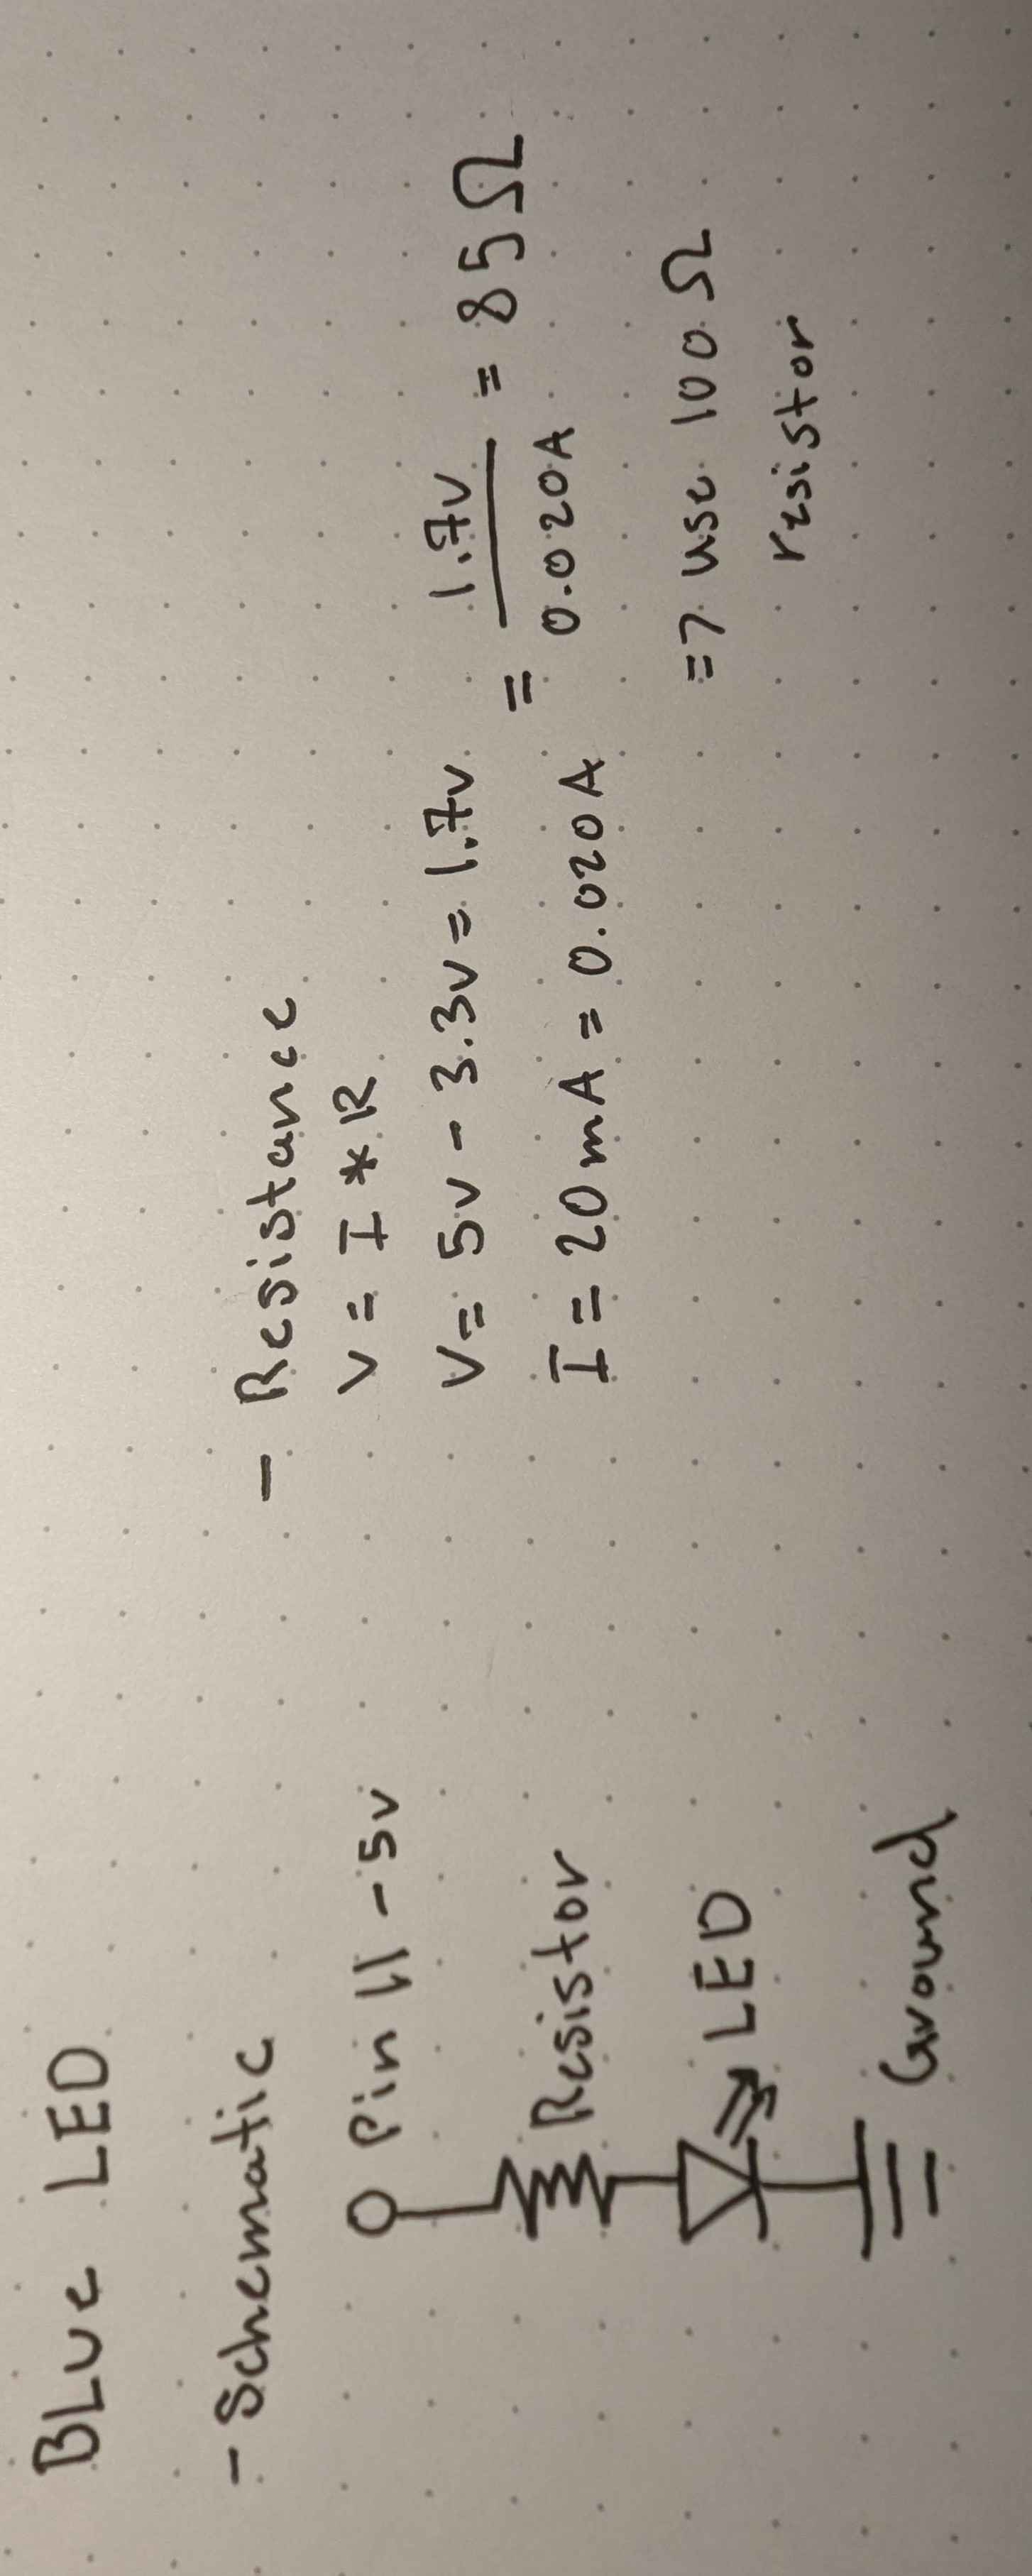 BLue LED
- Schematic
Pin 11 - 5v
Resistor
LED
Ground
- Resistance
V = I * R
V = 5v - 3.3v = 1.7v
I = 20mA = 0.020A
= 1.7v / 0.020A = 85Ω
=> use 100Ω
resistor